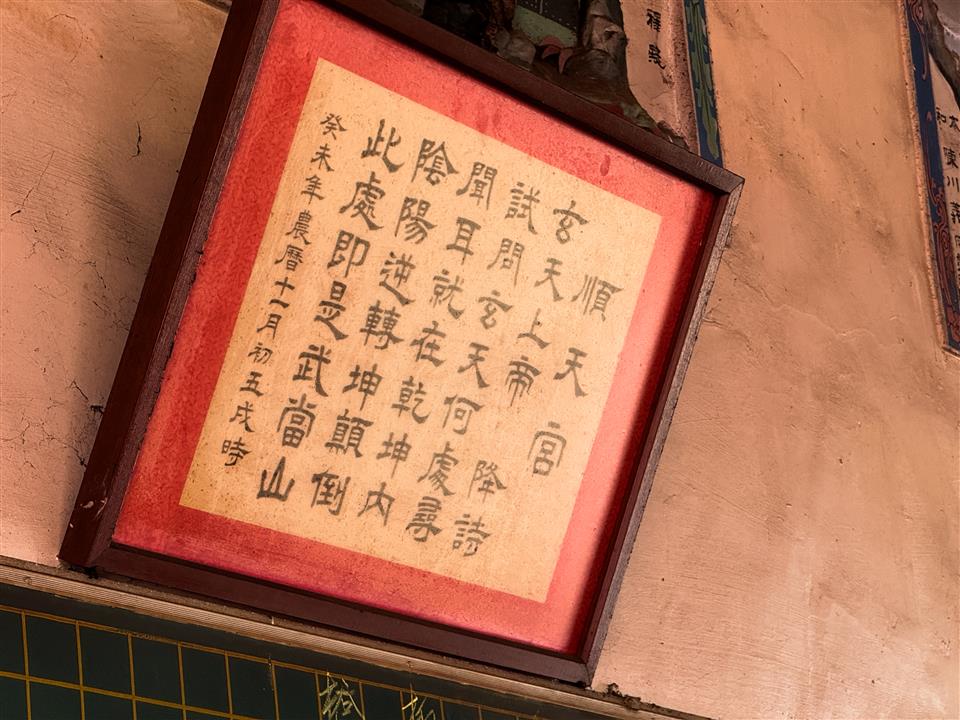 順天宮
玄天上帝 降詩
試問玄天何處尋
聞耳就在乾坤內
陰陽逆轉坤顛倒
此處即是武當山
癸未年農曆十一月初五戌時